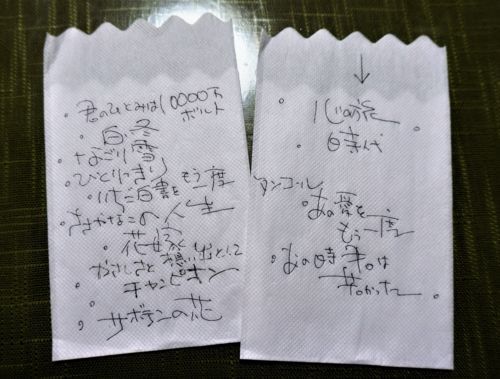 君のひとみは10000万
ボルト
白冬
なごり雪
ひとりきり
いちご白書をもう一度
ささやかなこの人生
花嫁
チャンピオン
サボテンの花
心の旅
時代
アンコール
あの愛を
もう一度
あの時君は
若かった